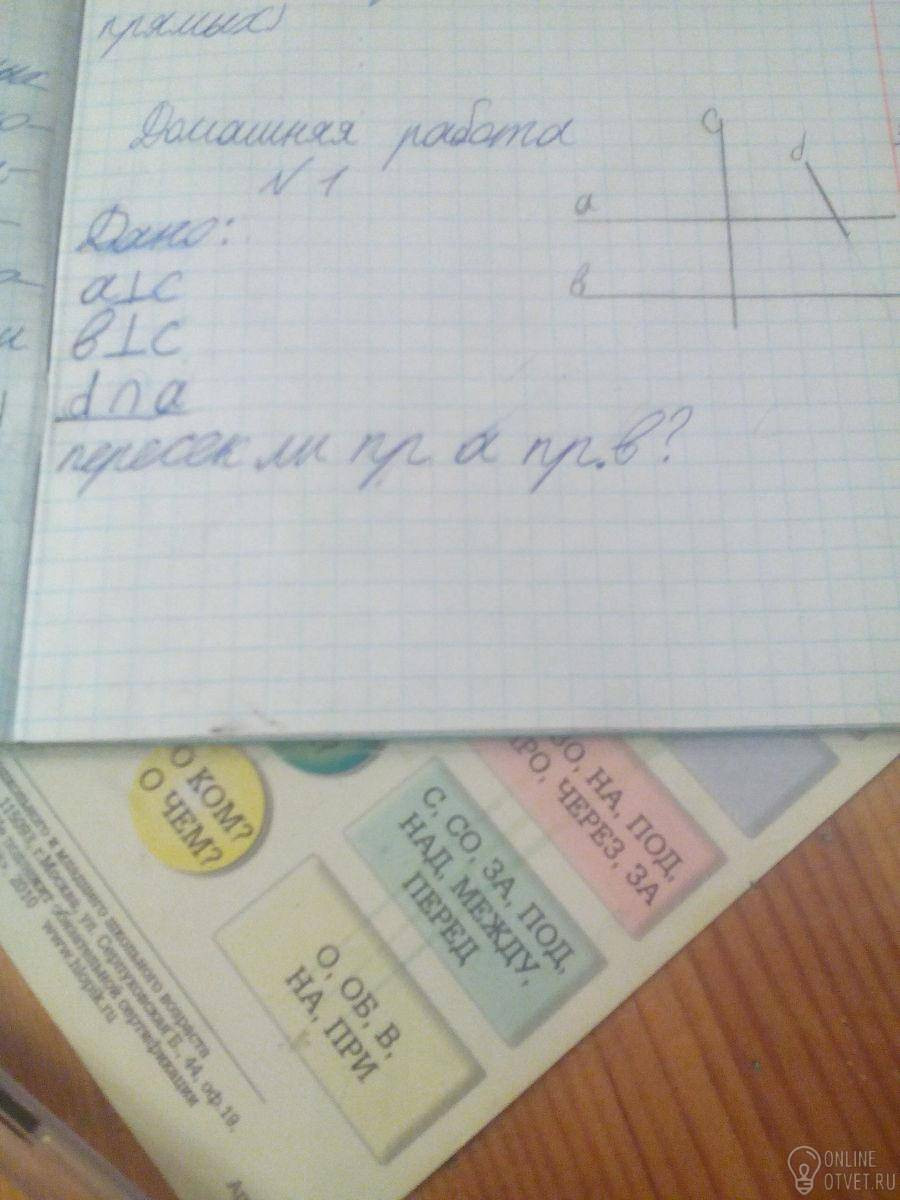 прямых)
Домашняя работа
N 1
Дано:
a⊥c
в⊥c
d∩a
пересек ли пр. d пр. в?
c
d
a
в
О КОМ?
О ЧЕМ?
ВО, НА, ПОД,
ПРО, ЧЕРЕЗ, ЗА
С, СО, ЗА, ПОД,
НАД, МЕЖДУ,
ПЕРЕД
О, ОБ, В,
НА, ПРИ
и младшего школьного возраста
г. Москва, ул. Серпуховская Б., 44, оф.19,
обязательной сертификации
2010
ONLINE
OTVET.RU